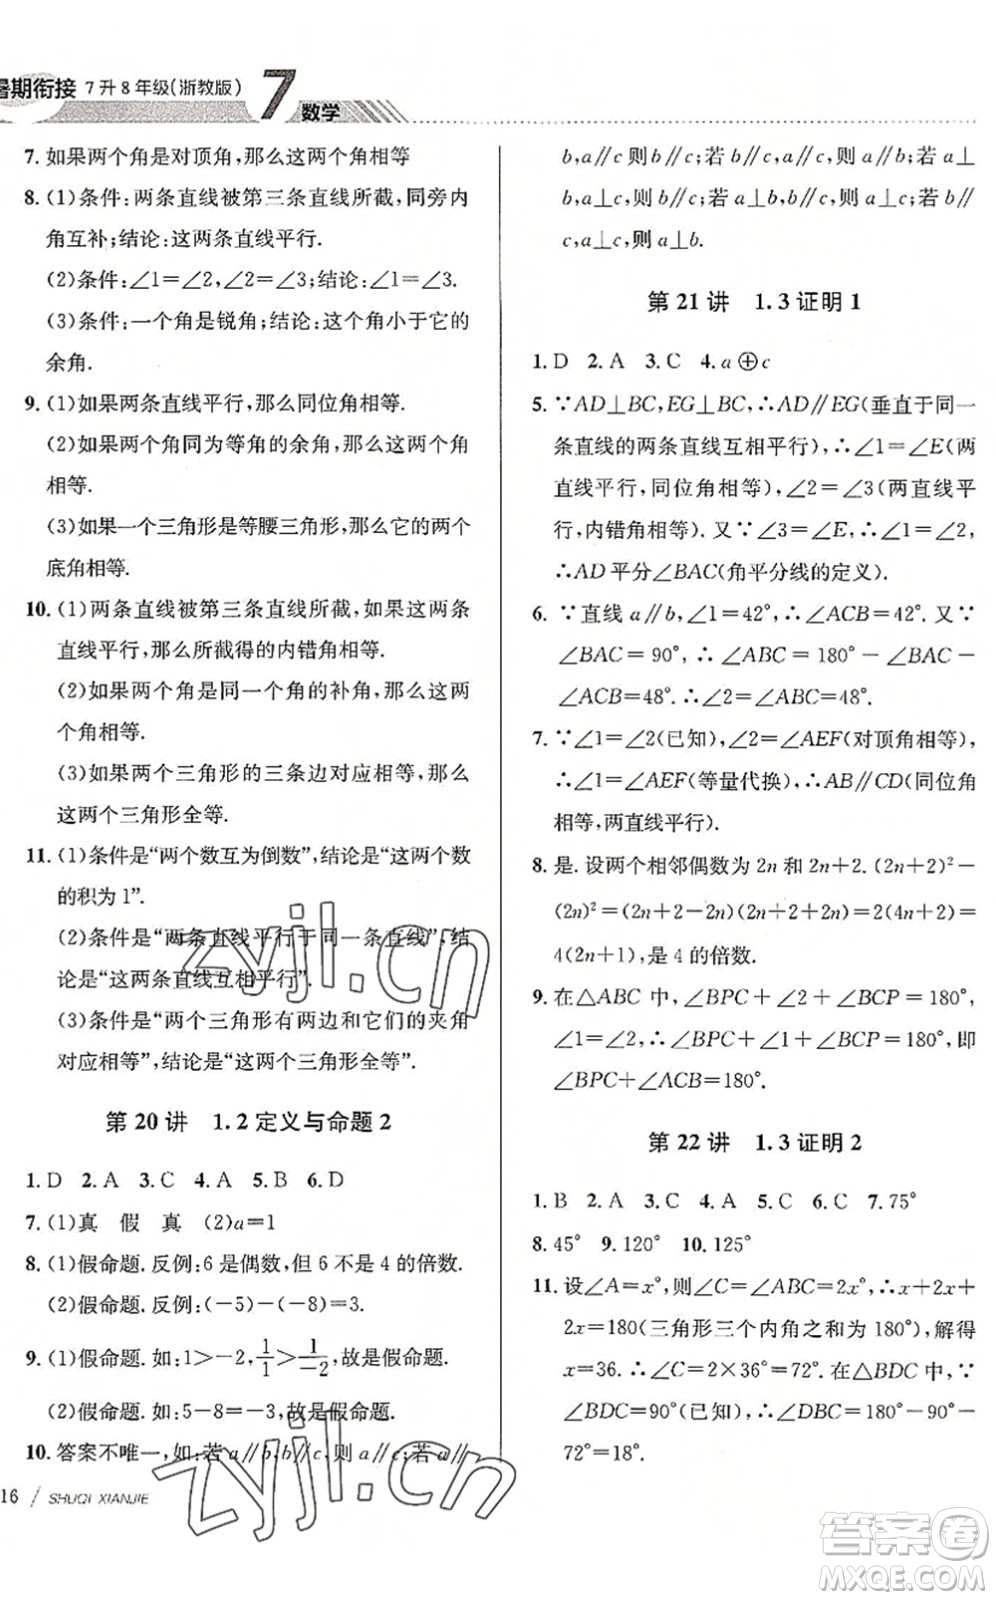 暑期衔接 7升8年级(浙教版) 7 数学
7. 如果两个角是对顶角,那么这两个角相等
8. (1)条件:两条直线被第三条直线所截,同旁内
角互补;结论:这两条直线平行.
(2)条件:∠1=∠2,∠2=∠3;结论:∠1=∠3.
(3)条件:一个角是锐角;结论:这个角小于它的
余角.
9. (1)如果两条直线平行,那么同位角相等.
(2)如果两个角同为等角的余角,那么这两个角
相等.
(3)如果一个三角形是等腰三角形,那么它的两个
底角相等.
10. (1)两条直线被第三条直线所截,如果这两条
直线平行,那么所截得的内错角相等.
(2)如果两个角是同一个角的补角,那么这两
个角相等.
(3)如果两个三角形的三条边对应相等,那么
这两个三角形全等.
11. (1)条件是“两个数互为倒数”,结论是“这两个数
的积为1”.
(2)条件是“两条直线平行于同一条直线”,结
论是“这两条直线互相平行”.
(3)条件是“两个三角形有两边和它们的夹角
对应相等”,结论是“这两个三角形全等”.
第20讲 1.2定义与命题2
1. D 2. A 3. C 4. A 5. B 6. D
7. (1)真 假 真 (2)a=1
8. (1)假命题. 反例:6是偶数,但6不是4的倍数.
(2)假命题. 反例:(-5)-(-8)=3.
9. (1)假命题. 如:1>-2,1/1>1/-2,故是假命题.
(2)假命题. 如:5-8=-3,故是假命题.
10. 答案不唯一,如:若a∥b,b∥c,则a∥c;若a∥
b,a∥c则b∥c;若b∥c,a∥c,则a∥b;若a⊥
b,a⊥c,则b∥c;若b∥c,a⊥b,则a⊥c;若b∥
c,a⊥c,则a⊥b.
第21讲 1.3证明1
1. D 2. A 3. C 4. a⊕c
5. ∵AD⊥BC,EG⊥BC,∴AD∥EG(垂直于同一
条直线的两条直线互相平行),∴∠1=∠E(两
直线平行,同位角相等),∠2=∠3(两直线平
行,内错角相等). 又∵∠3=∠E,∴∠1=∠2,
∴AD平分∠BAC(角平分线的定义).
6. ∵直线a∥b,∠1=42°,∴∠ACB=42°. 又∵
∠BAC=90°,∴∠ABC=180°-∠BAC-
∠ACB=48°. ∴∠2=∠ABC=48°.
7. ∵∠1=∠2(已知),∠2=∠AEF(对顶角相等),
∴∠1=∠AEF(等量代换),∴AB∥CD(同位角
相等,两直线平行).
8. 是. 设两个相邻偶数为2n和2n+2. (2n+2)²-
(2n)²=(2n+2-2n)(2n+2+2n)=2(4n+2)=
4(2n+1),是4的倍数.
9. 在△ABC中,∠BPC+∠2+∠BCP=180°,
∵∠1=∠2,∴∠BPC+∠1+∠BCP=180°,即
∠BPC+∠ACB=180°.
第22讲 1.3证明2
1. B 2. A 3. C 4. A 5. C 6. C 7. 75°
8. 45° 9. 120° 10. 125°
11. 设∠A=x°,则∠C=∠ABC=2x°,∴x+2x+
2x=180(三角形三个内角之和为180°),解得
x=36. ∴∠C=2×36°=72°. 在△BDC中,∵
∠BDC=90°(已知),∴∠DBC=180°-90°-
72°=18°.
16 / SHUQI XIANJIE
zyjl.cn
zyjl.cn
答案卷
MXQE.COM